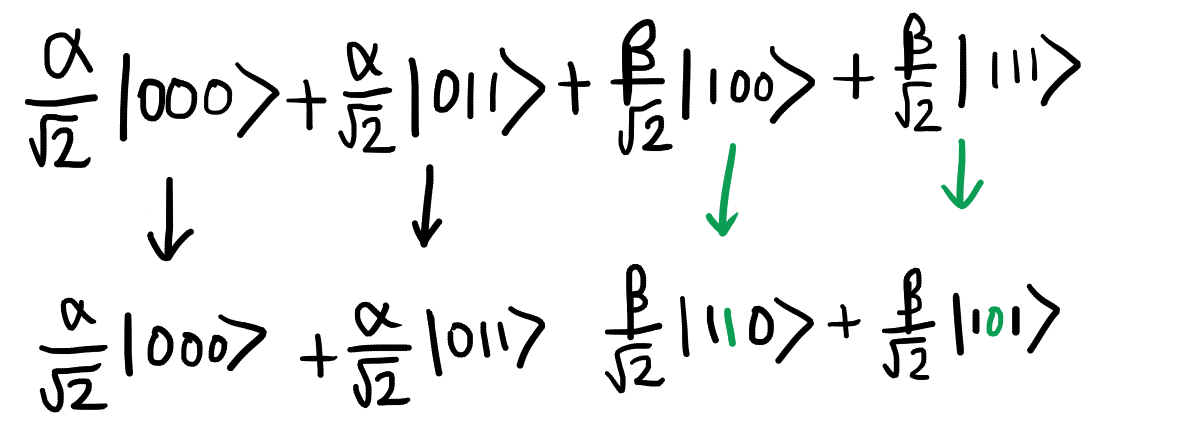 α/√2 |000⟩ + α/√2 |011⟩ + β/√2 |100⟩ + β/√2 |111⟩
α/√2 |000⟩ + α/√2 |011⟩ β/√2 |110⟩ + β/√2 |101⟩